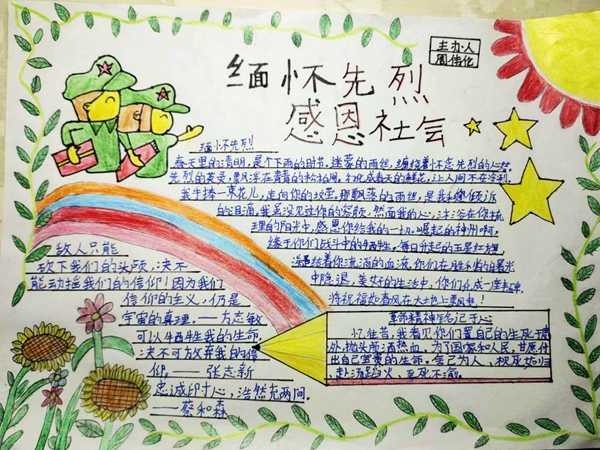 缅怀先烈
感恩社会
主办人
周佳化
缅怀先烈
春天里的清明，是个下雨的时节，迷蒙的雨丝，缠绕着怀念先烈的心然
先烈的英灵，飘浮在青青的
化成曲天的鲜花，让人间不在
我手捧一束花儿，走向你的坟茔，那飘落的雨丝，是我
倾诉
的泪滴，我虽没见过你的容颜，然而我的心，沐浴在你
理的阳光中，感恩你给我的一切。崛起的神州啊，
缘于你们战斗中的牺牲，每日升起的五星红旗
着你流淌的血液，你们在胜利的曙光
中隐退，美好的生活中，你们化成一座
将祝福如春风在大地上
敌人只能
砍下我们的头颅，决不
能动摇我们的信仰！因为我们
信仰的主义，仍是
宇宙的真理。——方志敏
可以牺牲我的生命，
决不可放弃我的信
仰。——张志新
忠诚印寸心，浩然充两间。
——蔡和森
革命精神铭记于心
忆往昔，我看见你们置自己的生死
外，抛头颅洒热血，为了国家和人民，甘愿付
出自己宝贵的生命。舍己为人，视死如归
赴汤蹈火，至死不渝。